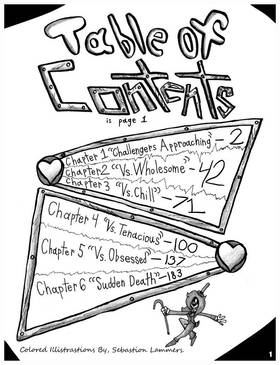 Table of
Contents
is page 1
Chapter 1 "Challengers Approaching" - 2
Chapter 2 "Vs. Wholesome" - 42
Chapter 3 "Vs. Chill" - 71
Chapter 4 "Vs. Tenacious" - 100
Chapter 5 "Vs. Obsessed" - 137
Chapter 6 "Sudden Death" - 183
Colored Illustrastions By, Sebastion Lammers.
1